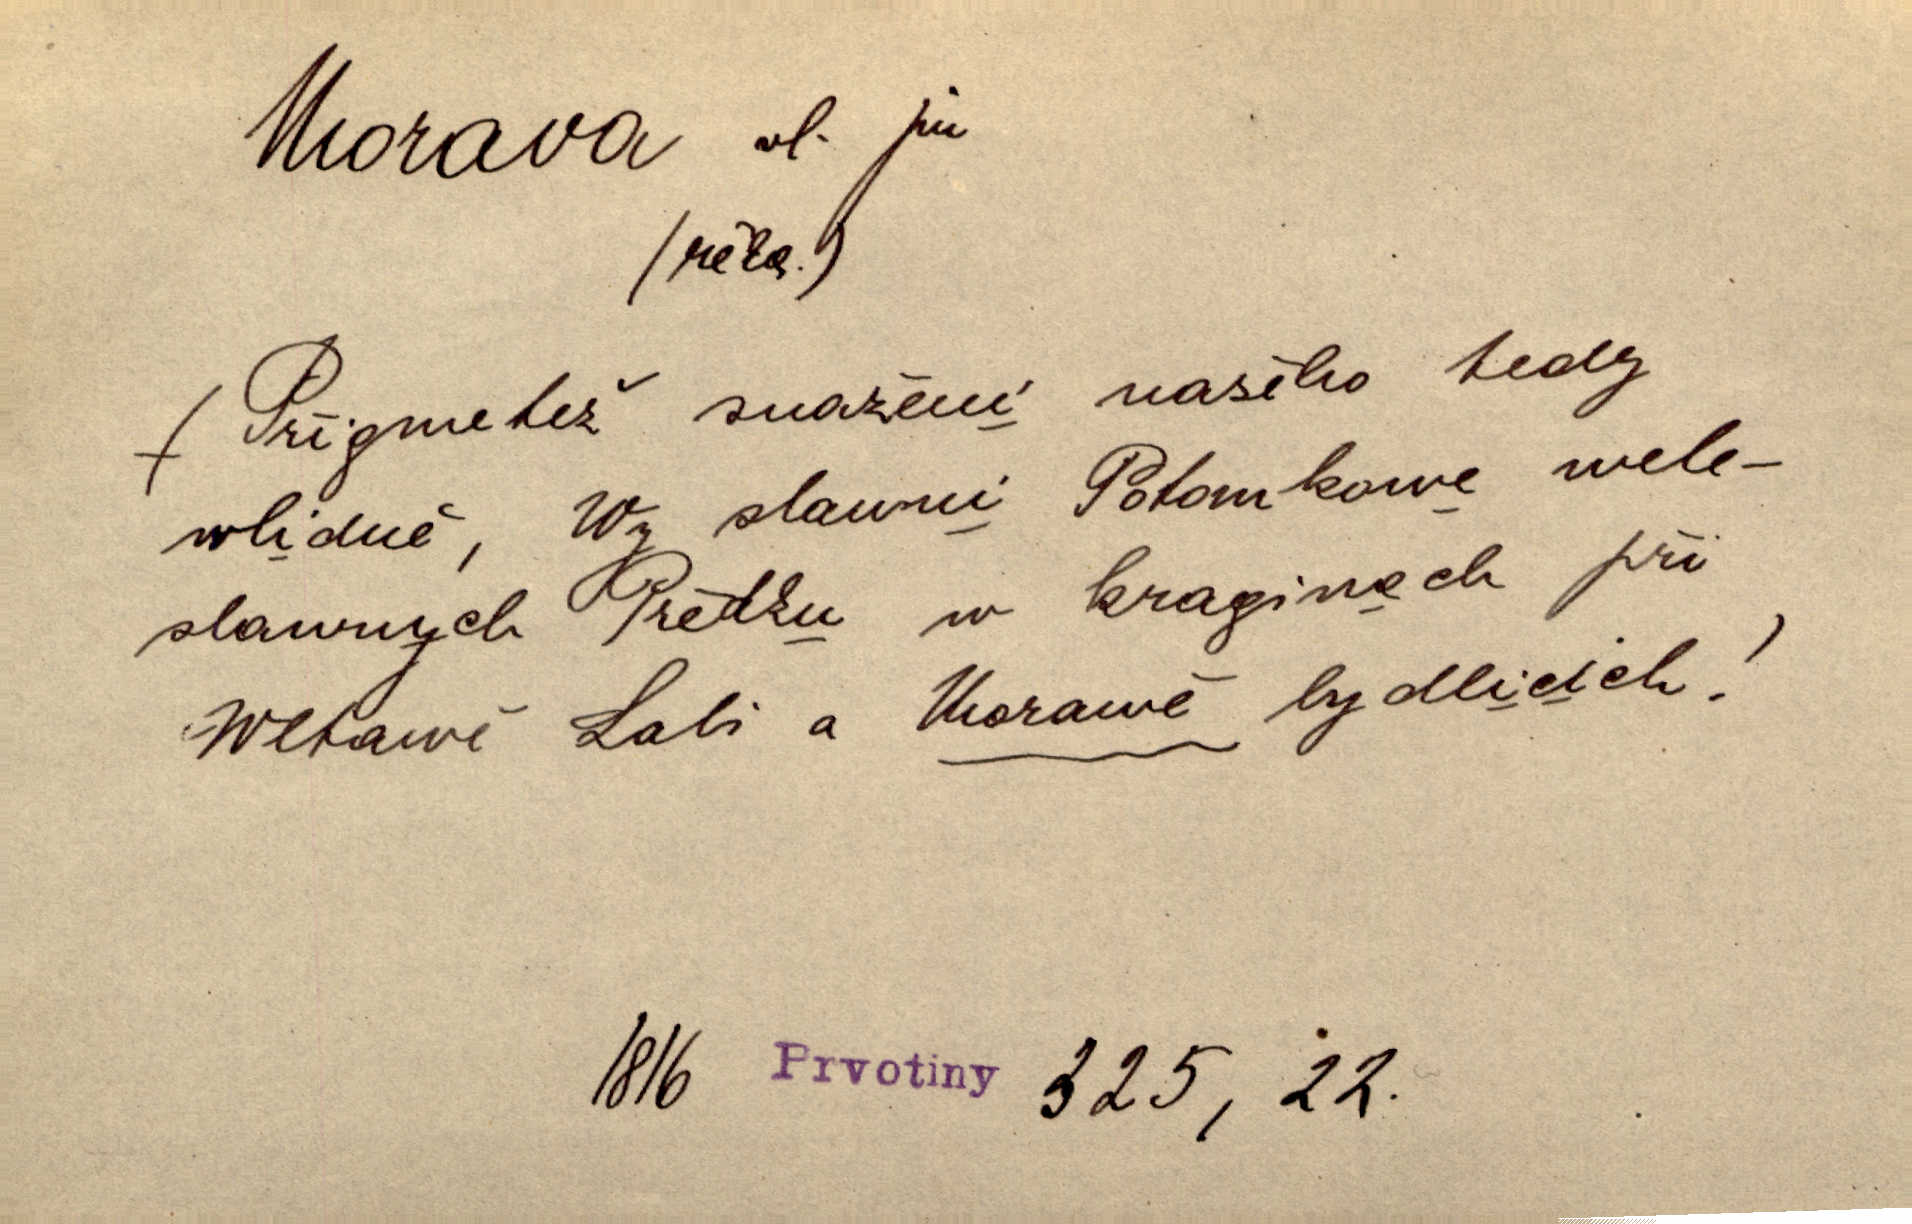 Morava vl. jm
(řeka.)
Přigmetež snažení našeho tedy
wlidně, Wy slawni Potomkowe wele-
slawnych Předku w kraginach při
Wltawě Labi a Morawě bydlicich!
1816 Prvotiny 325, 22.